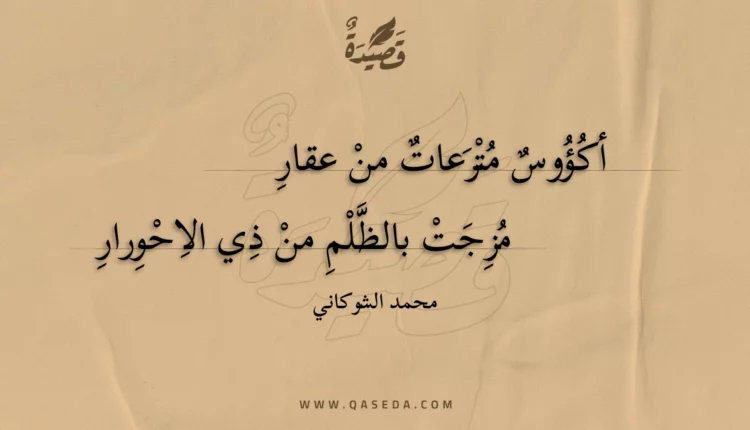 قَصِيْدَةٌ
أكُؤُوسٌ مُتْرَعاتٌ منْ عقارِ
مُزِجَتْ بالظَّلْمِ منْ ذِي الاِحْوِرارِ
محمد الشوكاني
WWW.QASEDA.COM